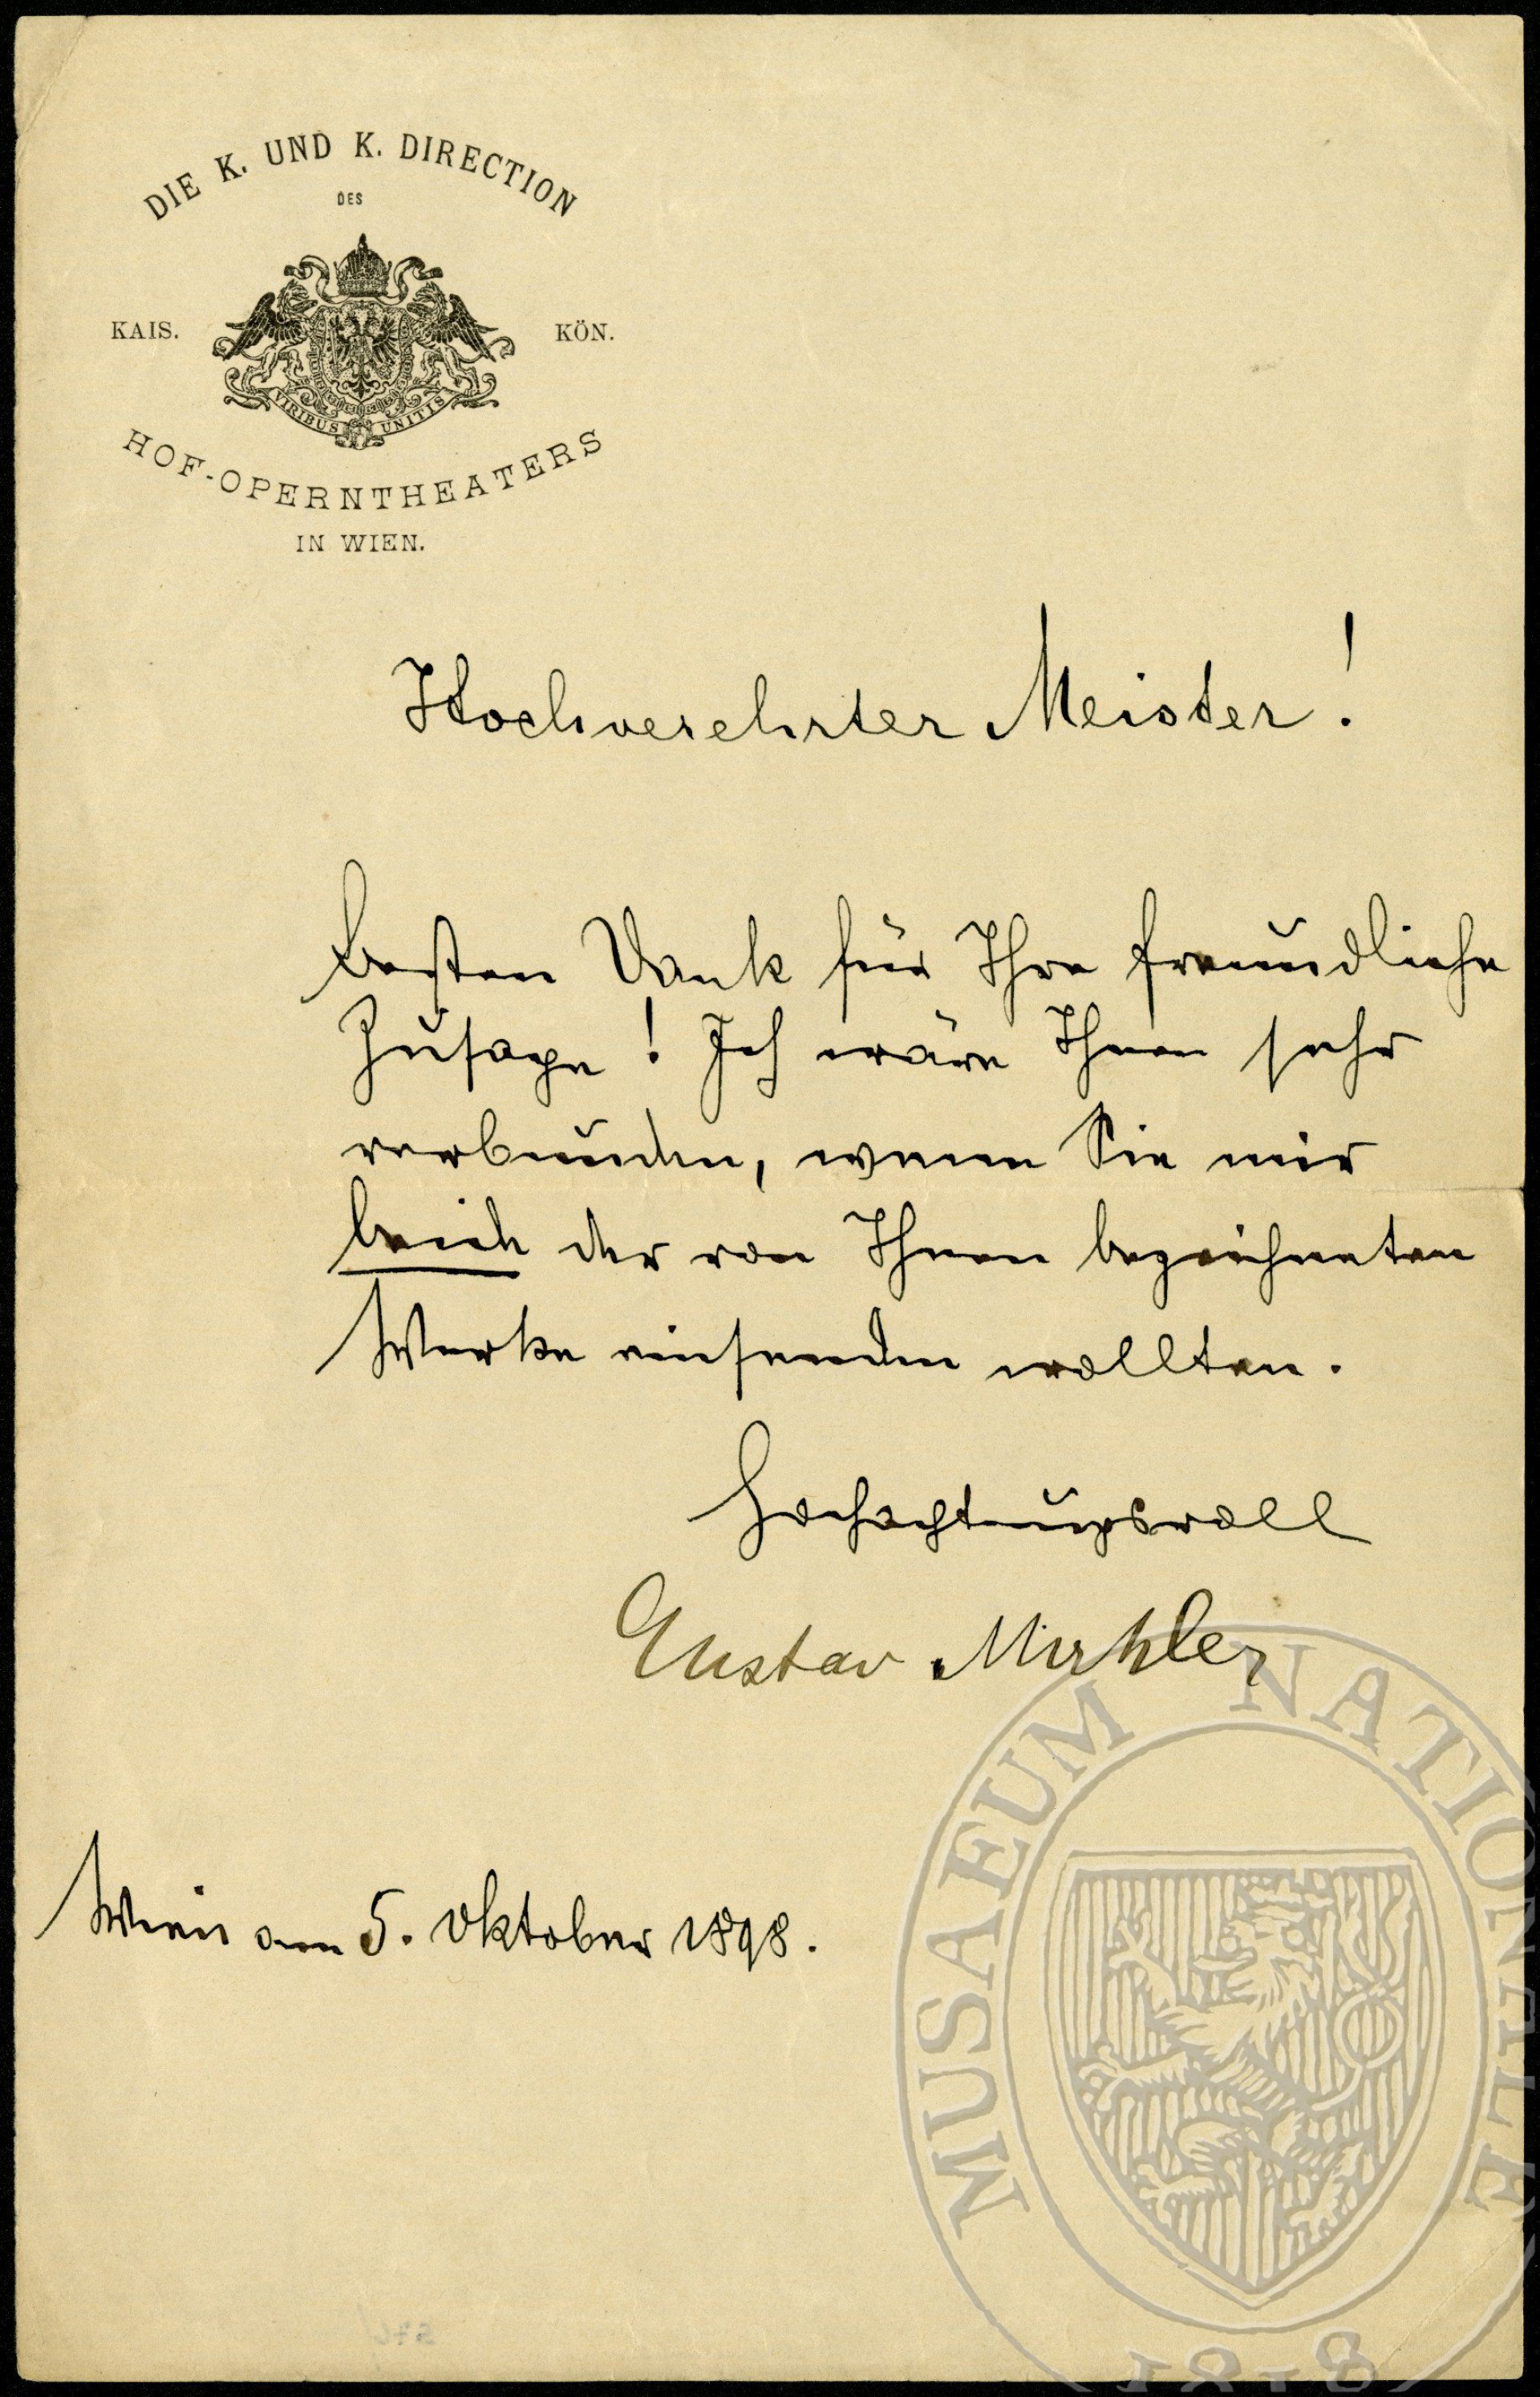 DIE K. UND K. DIRECTION
DES
KAIS. KÖN.
VIRIBUS UNITIS
HOF-OPERNTHEATERS
IN WIEN.
Hochverehrter Meister!
Besten Dank für Ihre freundliche
Zusage! Ich wäre Ihnen sehr
verbunden, wenn Sie mir
beide der von Ihnen bezeichneten
Werke einsenden wollten.
Hochachtungsvoll
Gustav Mahler
Wien am 5. Oktober 1898.
MUSAEUM NATIONALE
1818